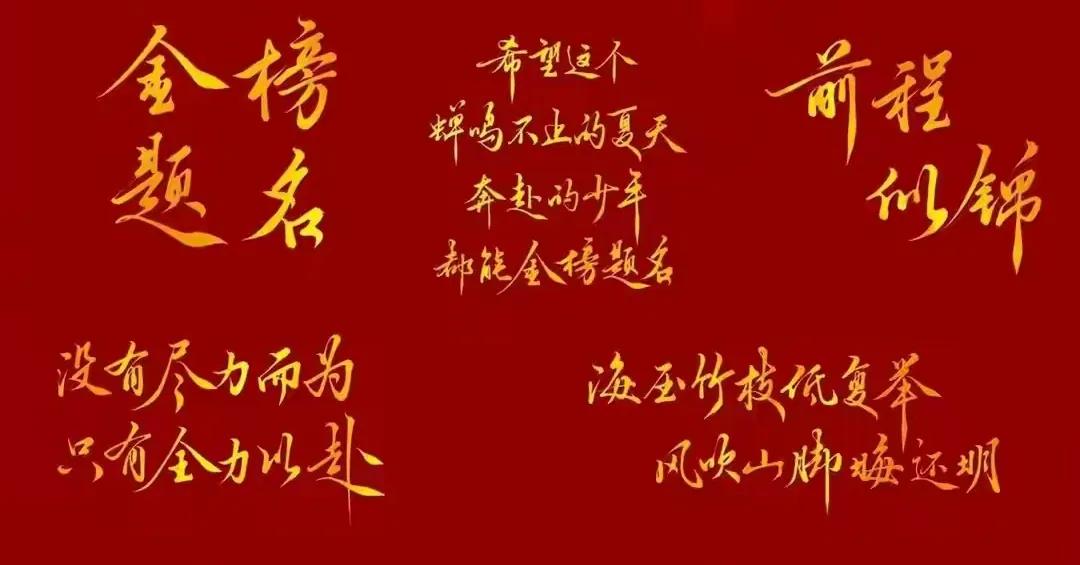 金榜
题名
希望这个
蝉鸣不止的夏天
奔赴的少年
都能金榜题名
前程
似锦
没有尽力而为
只有全力以赴
海压竹枝低复举
风吹山脚晦还明